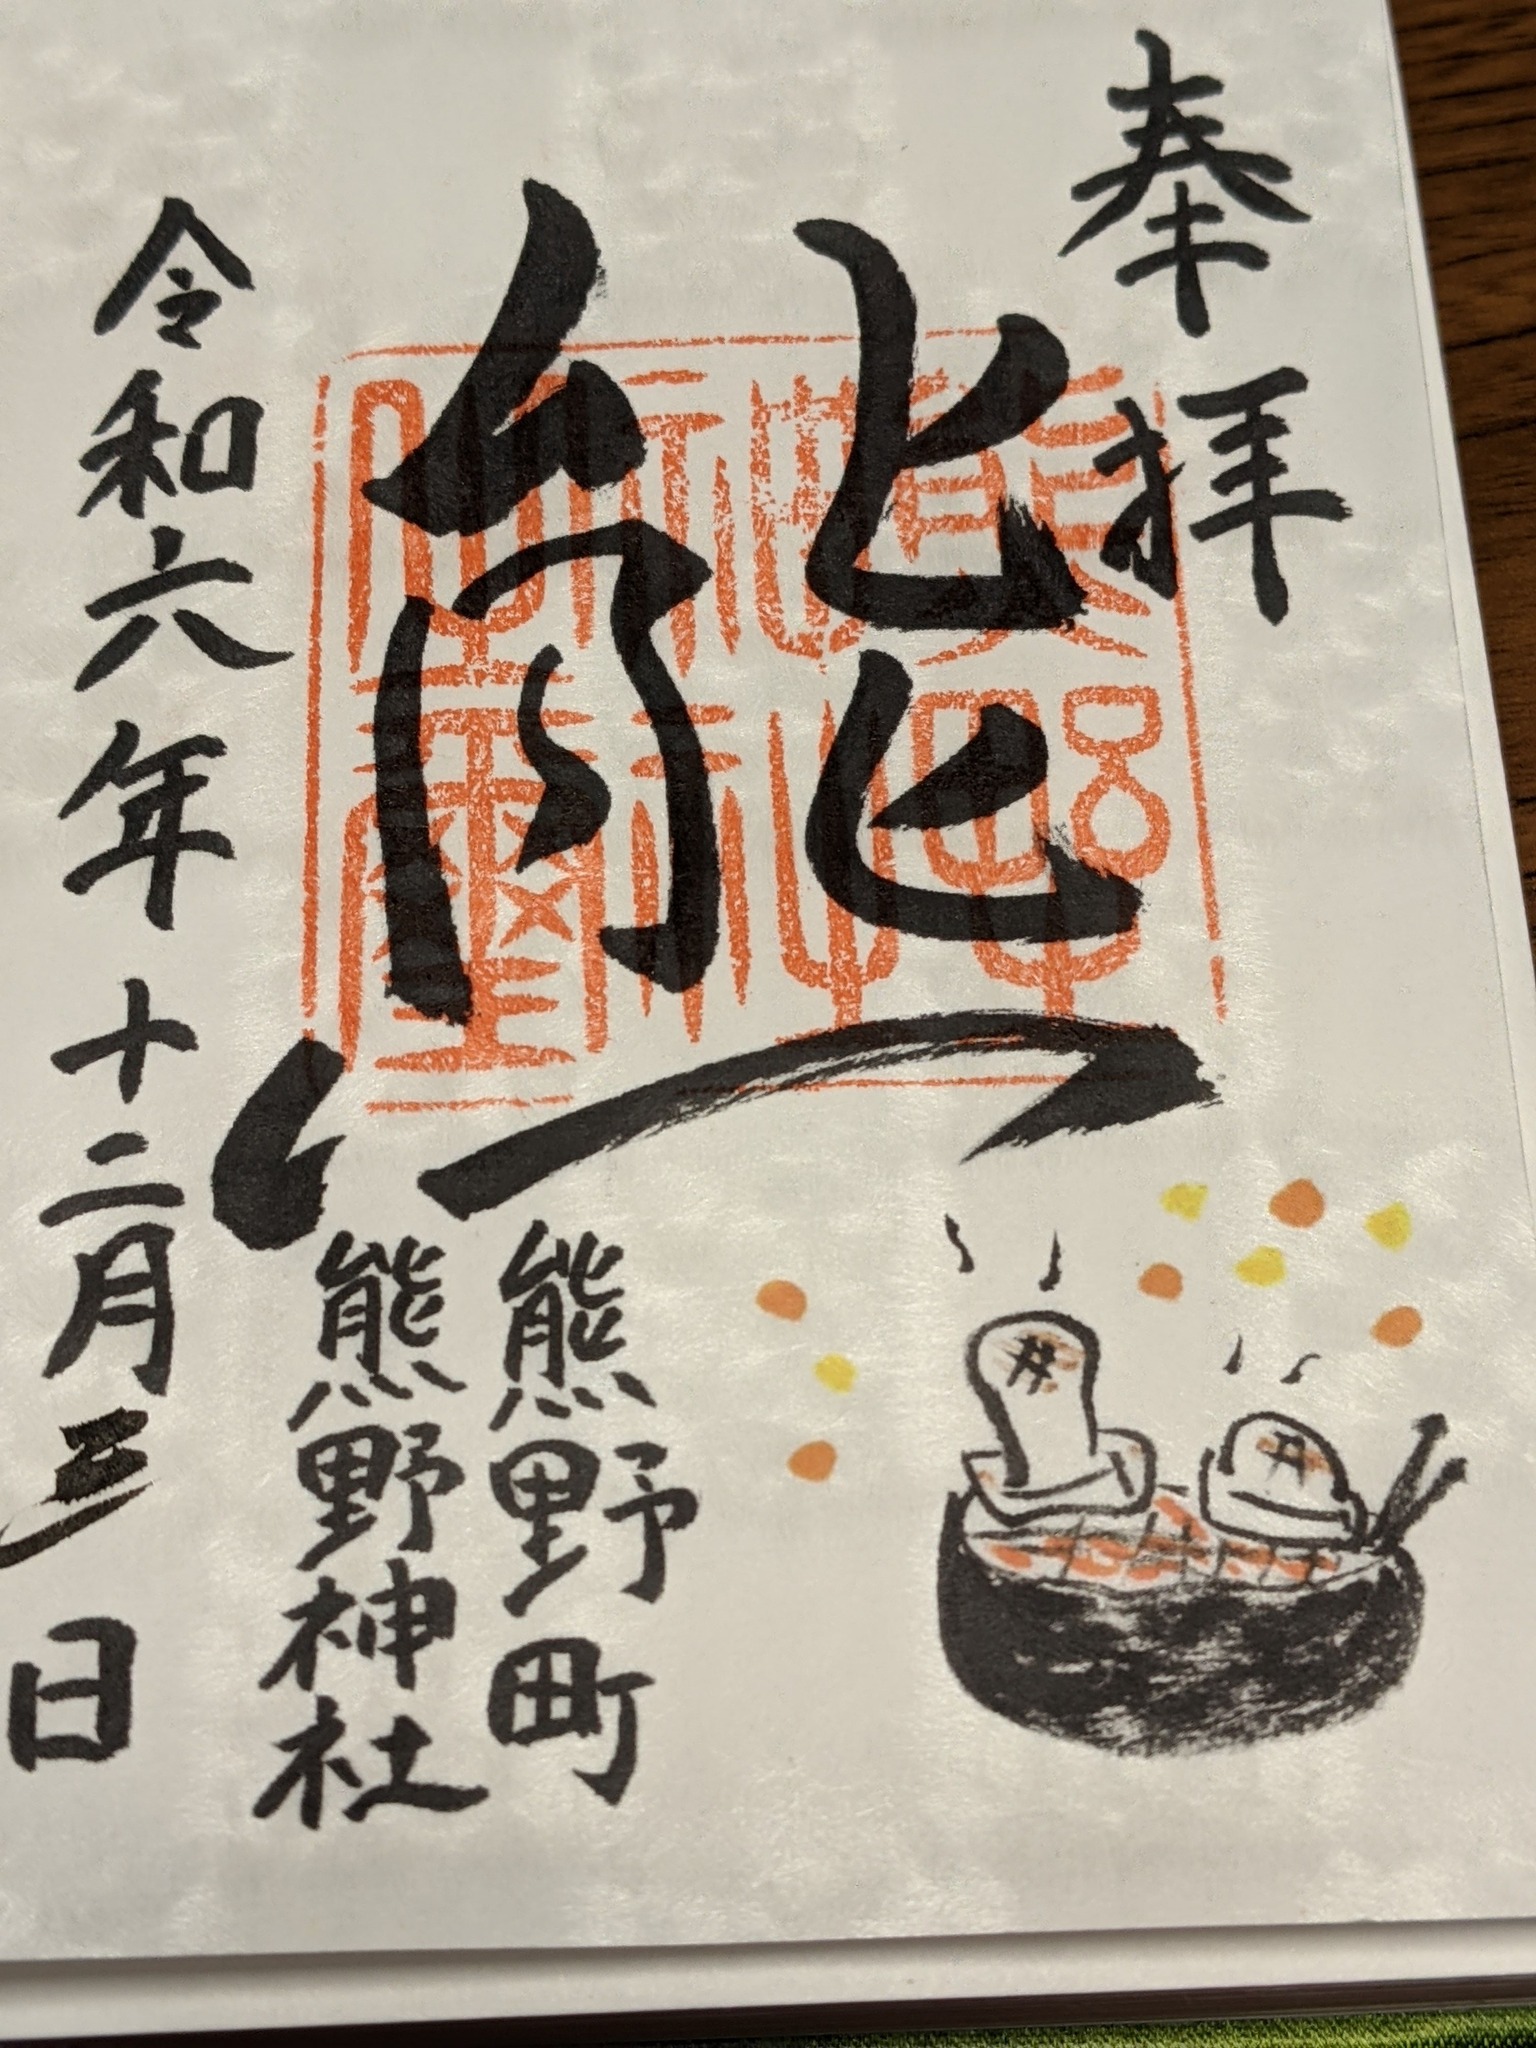 奉拝
熊
熊野町
熊野神社
令和六年十二月三日